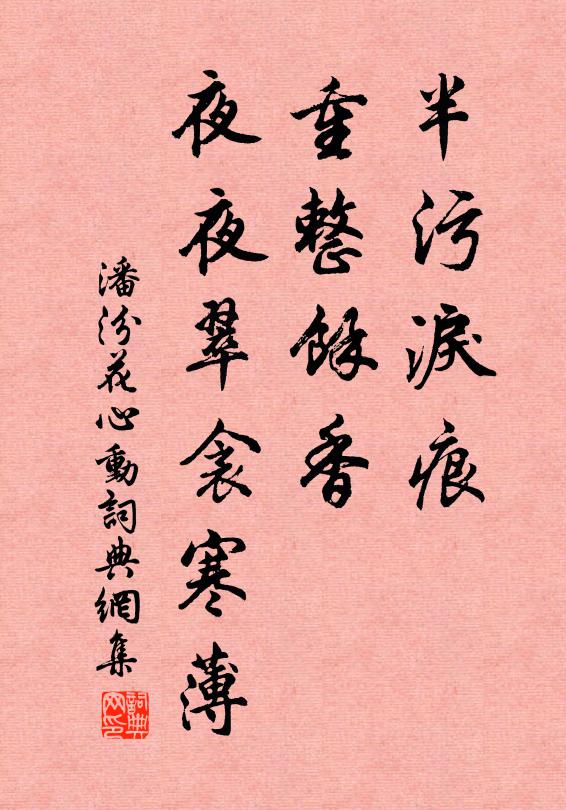 半污淚痕
重整餘香
夜夜翠衾寒薄
潘汾花心動詞典網集
詞典网印